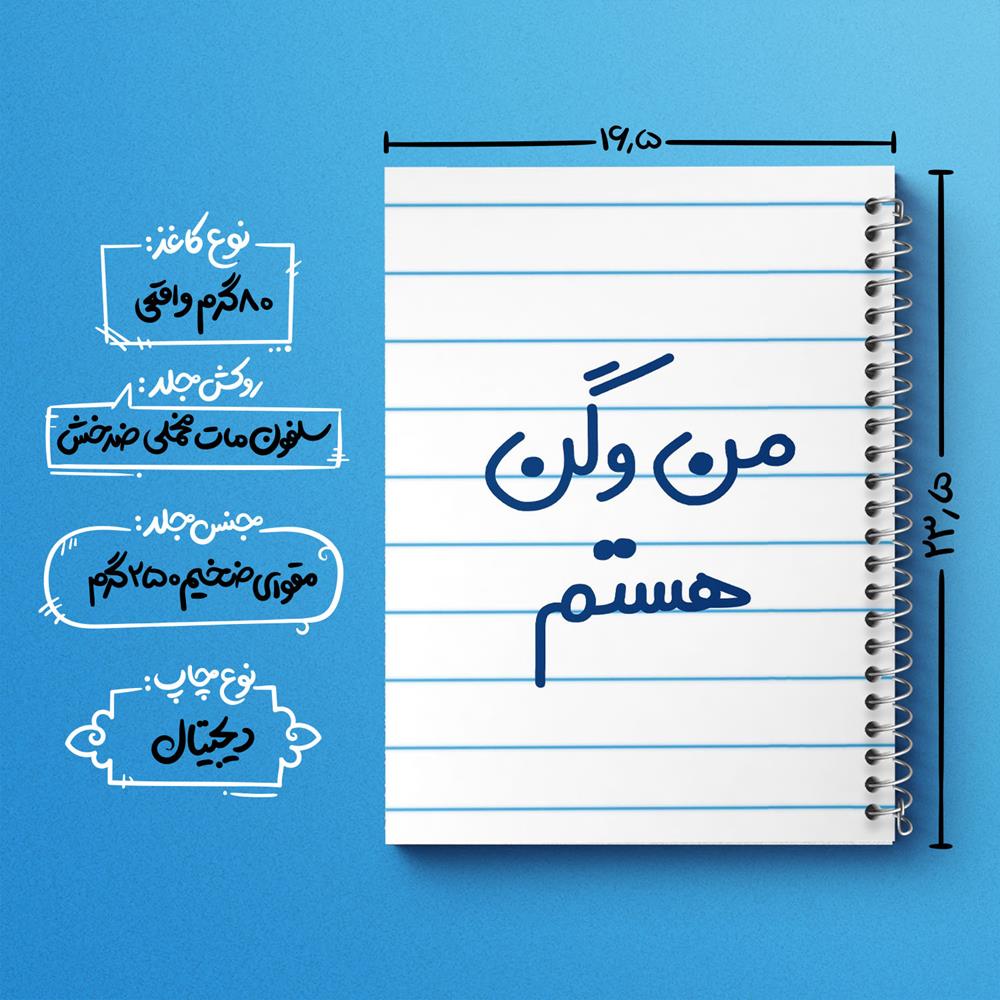 ۱۶٫۵
۲۳٫۵
من وگن
هستم
نوع کاغذ:
۸۰گرم واقعی
روکش جلد:
سلفون مات مخملی ضدخش
جنس جلد:
مقوای ضخیم ۲۵۰ گرم
نوع چاپ:
دیجیتال